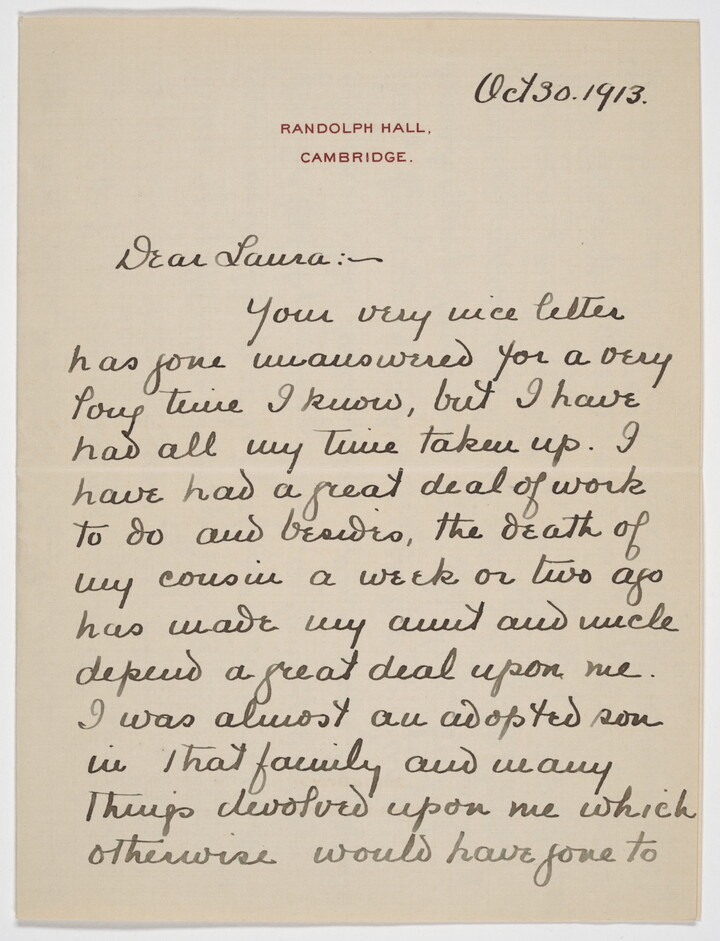 Oct 30. 1913.
RANDOLPH HALL,
CAMBRIDGE.
Dear Laura:—
Your very nice letter
has gone unanswered for a very
long time I know, but I have
had all my time taken up. I
have had a great deal of work
to do and besides, the death of
my cousin a week or two ago
has made my aunt and uncle
depend a great deal upon me.
I was almost an adopted son
in that family and many
things devolved upon me which
otherwise would have gone to